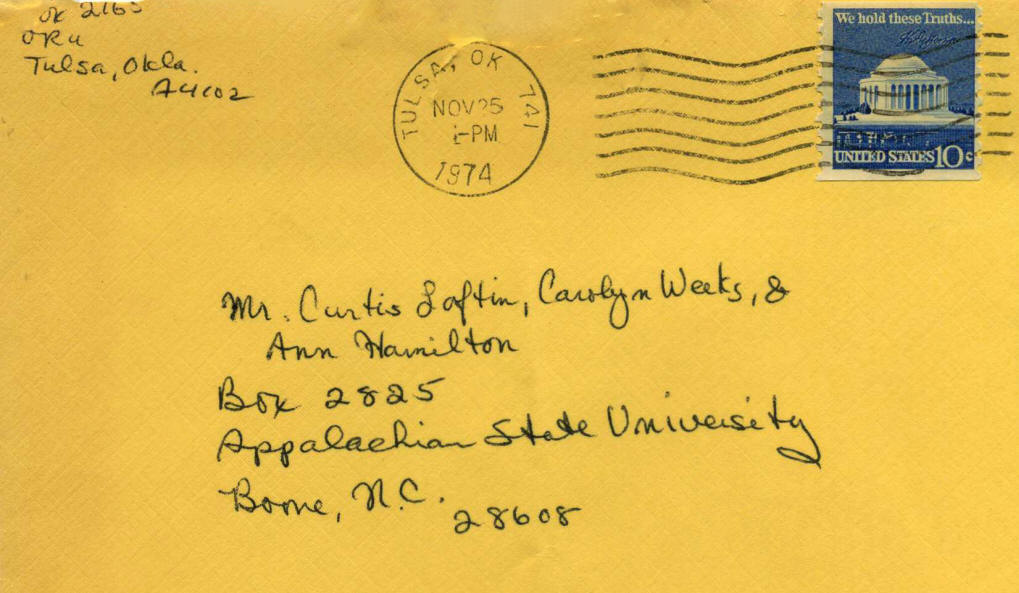 ox 2165
ORU
Tulsa, Okla.
74102
TULSA, OK 741
NOV 25
PM
1974
We hold these Truths...
UNITED STATES 10c
Mr. Curtis Loftin, Carolyn Weeks, &
Ann Hamilton
Box 2825
Appalachian State University
Boone, N.C.
28608